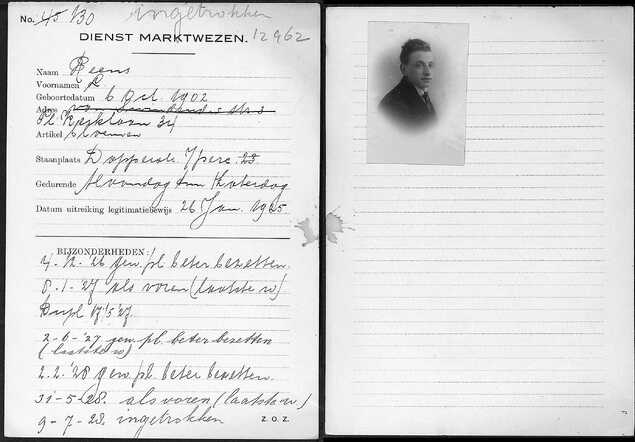 No. 45 130 ingetrokken
DIENST MARKTWEZEN. 12962
Naam Reens
Voornamen R
Geboortedatum 6 Oct. 1902
Adres
Pl. Kerklaan 34
Artikel bloemen
Staanplaats Dapperstr. Yperc. 23
Gedurende Maandag t/m Zaterdag
Datum uitreiking legitimatiebewijs 26 Jan. 1925
BIJZONDERHEDEN:
4.-12.-'26 gew. pl. beter bezetten.
8.-1-'27 als voren (laatste w)
Dupl 17/5 '27.
2-6-'27 gew. pl. beter bezetten
(laatste w)
2.2.'28 gew. pl. beter bezetten.
31-5-28. als voren (laatste w.)
9-7-28. ingetrokken Z.O.Z.